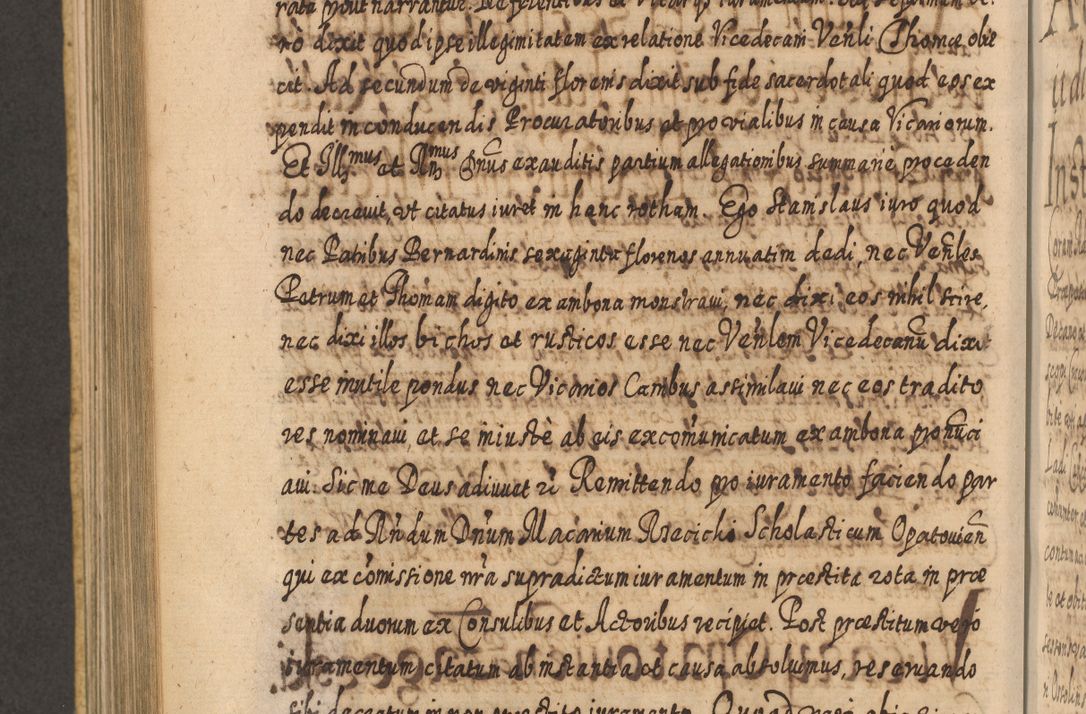 rata prout narrantur. De
rò dixit quod ipse illegimitatem ex relatione Vicedecani Venli Thomæ obie
cit. Ad secundum de viginti florenis dixit sub fide sacerdotali quod eos ex
pendit in conducendis Procuratoribus et pro vialibus in causa Vicariorum.
Et Illmus et Rmus Dnus exauditis partium allegationibus summariè proceden
do decrevit, vt citatus iuret in hanc rotham. Ego Stanislaus iuro quod
nec Patribus Bernardinis sexaginta florenos annuatim dedi, nec Venles
Petrum et Thomam digito ex ambona monstravi, nec dixi eos nihil scire,
nec dixi illos bichos et rusticos esse nec Venlem Vicedecanū dixi
esse inutile pondus nec Vicarios Canibus assimilavi nec eos tradito
res nominavi, et se iniustè ab eis excomunicatum ex ambona pronūci
avi. Sic me Deus adiuvet &c Remittendo pro iuramento faciendo par
tes ad Rndum Dnum Macarium Rzecicki Scholasticum Opatovien
qui ex comissione nra supradictum iuramentum in præstita rota in præ
sentia duorum ex Consulibus et Actoribus recipiet. Post præstitum verò
iuramentum citatum ab instantia et causa absolvimus, reservando
sibi decretum in non præstito iuramento.